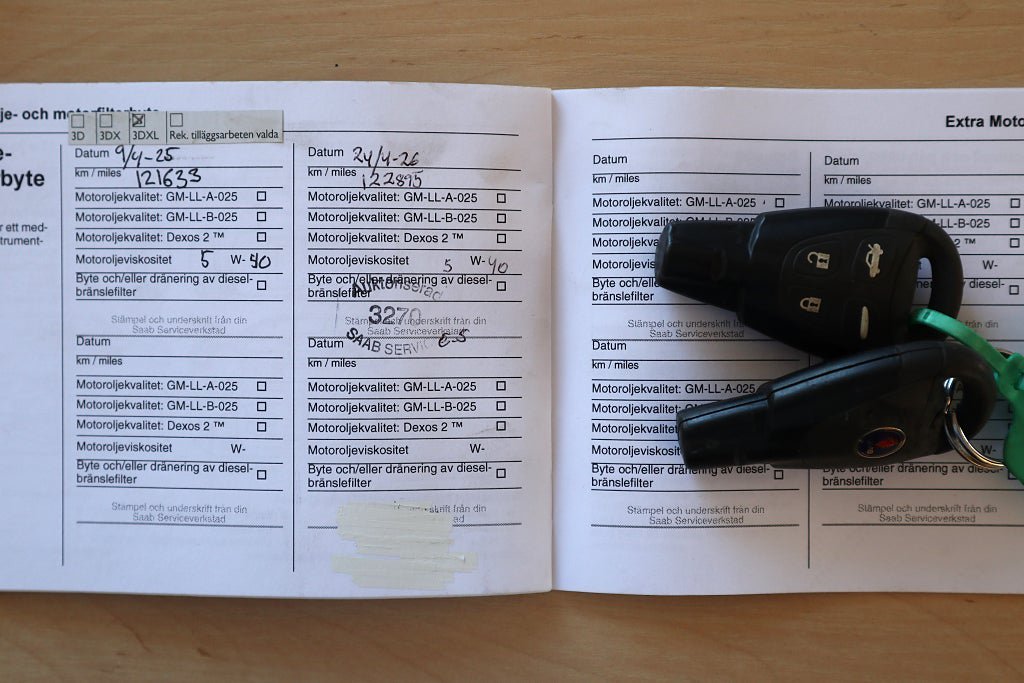 je- och motorfilterbyte
3D 3DX 3DXL Rek. tilläggsarbeten valda
e-
rbyte
r ett med-
trument-
Datum 9/4-25
km / miles 121633
Motoroljekvalitet: GM-LL-A-025
Motoroljekvalitet: GM-LL-B-025
Motoroljekvalitet: Dexos 2 ™
Motoroljeviskositet 5 W-40
Byte och/eller dränering av diesel-
bränslefilter
Stämpel och underskrift från din
Saab Serviceverkstad
Datum
km / miles
Motoroljekvalitet: GM-LL-A-025
Motoroljekvalitet: GM-LL-B-025
Motoroljekvalitet: Dexos 2 ™
Motoroljeviskositet W-
Byte och/eller dränering av diesel-
bränslefilter
Stämpel och underskrift från din
Saab Serviceverkstad
Datum 24/4-26
km / miles 122895
Motoroljekvalitet: GM-LL-A-025
Motoroljekvalitet: GM-LL-B-025
Motoroljekvalitet: Dexos 2 ™
Motoroljeviskositet 5 W-40
Byte och/eller dränering av diesel-
bränslefilter
Auktoriserad
3270
SAAB SERVIC
Stämpel och underskrift från din
Datum
km / miles
Motoroljekvalitet: GM-LL-A-025
Motoroljekvalitet: GM-LL-B-025
Motoroljekvalitet: Dexos 2 ™
Motoroljeviskositet W-
Byte och/eller dränering av diesel-
bränslefilter
Stämpel och underskrift från din
ad
Extra Moto
Datum
km / miles
Motoroljekvalitet: GM-LL-A-025
Motoroljekvalitet: GM-LL-B-025
Motoroljekvalitet
Motoroljevis
Byte och/el
bränslefilter
Stämpel och underskrift från din
Saab Serviceverkstad
Datum
km / miles
Motoroljekvalitet: GM-LL-A-025
Motoroljekvalitet: GM-LL
Motoroljekvalitet:
Motoroljeviskosit
Byte och/eller dränering av diesel-
bränslefilter
Stämpel och underskrift från din
Saab Serviceverkstad
Datum
km / miles
Motoroljekvalitet: GM-LL-A-025
-025
2 ™
W-
diesel-
W-
Byte och/eller dränering av diesel-
bränslefilter
Stämpel och underskrift från din
Saab Serviceverkstad